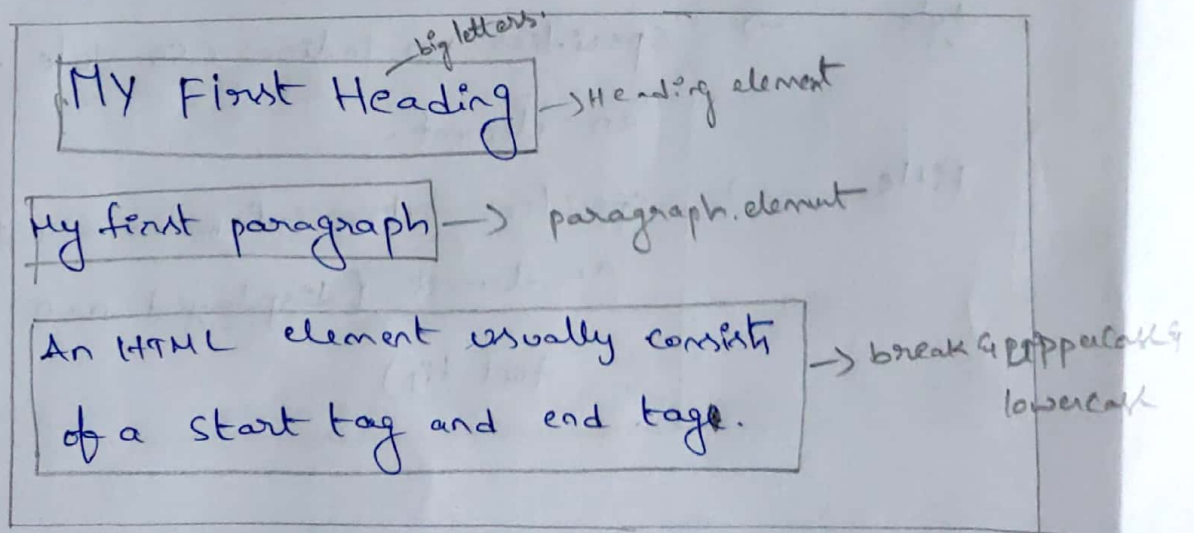 big letters.
My First Heading → Heading element
My first paragraph → paragraph. element
An HTML element usually consists
of a start tag and end tag. → break & uppercase &
lowercase